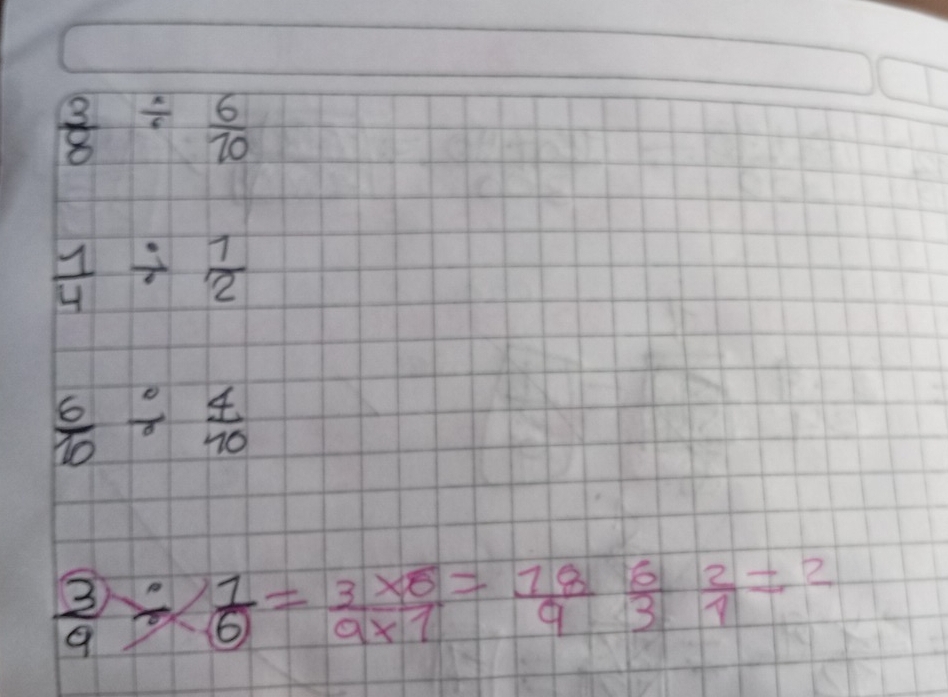 3/8 ÷ 6/10
1/4 ÷ 1/2
6/10 ÷ 4/10
3/9 ÷ 1/6 = 3x6/9x1 = 18/9 6/3 2/1 = 2